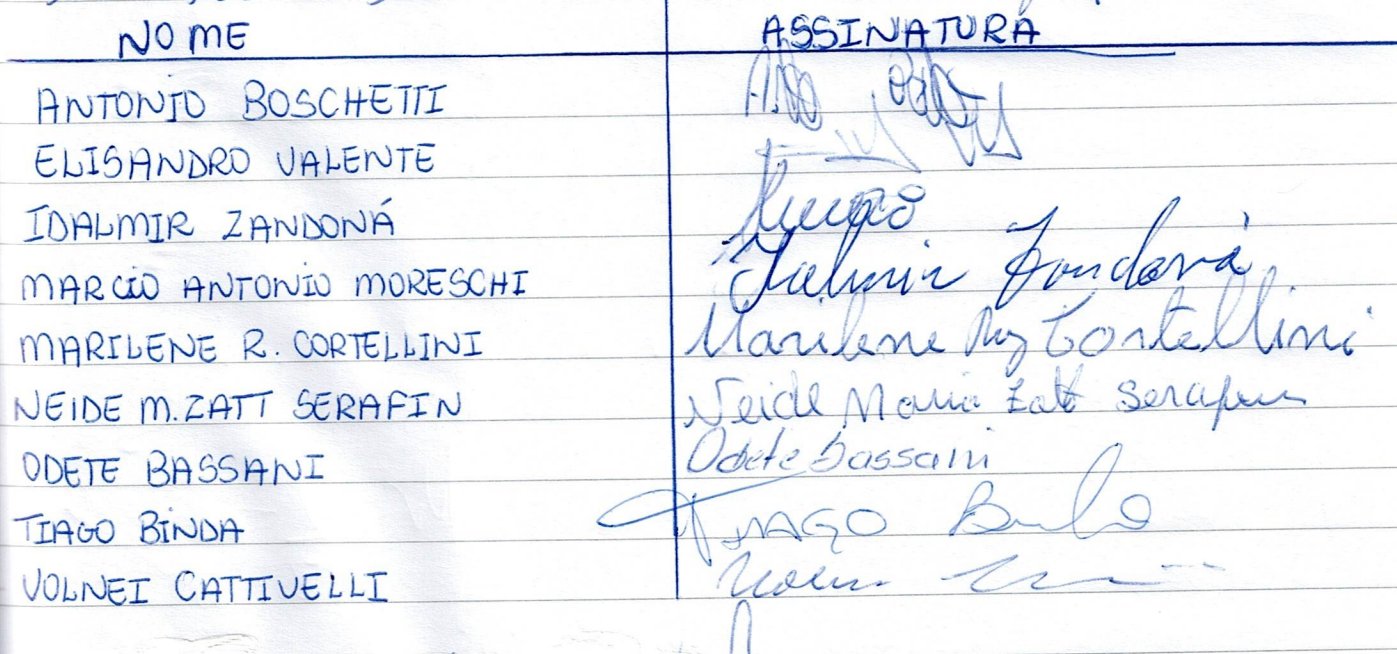 NOME ASSINATURA
ANTONIO BOSCHETTI
ELISANDRO VALENTE
IDALMIR ZANDONÁ
MARCIO ANTONIO MORESCHI Idalmir Zandoná
MARILENE R. CORTELLINI Marilene Cortellini
NEIDE M. ZATT SERAFIN Neide Maria Zatt Serafin
ODETE BASSANI Odete Bassani
TIAGO BINDA TIAGO Binda
VOLNEI CATTIVELLI